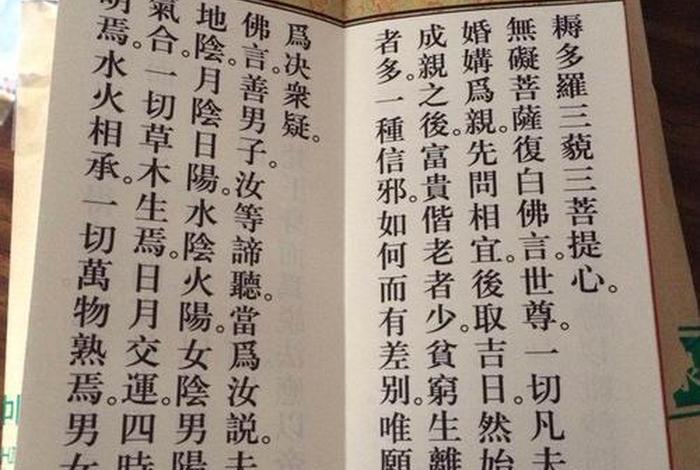 耨多羅三藐三菩提心。
無礙菩薩復白佛言。世尊。一切凡夫
婚媾爲親。先問相宜。後取吉日。然始
成親之後。富貴偕老者少。貧窮生離
者多。一種信邪。如何而有差别。唯願
爲決衆疑。
佛言。善男子。汝等諦聽。當爲汝說。夫
地陰。月陰日陽。水陰火陽。女陰男陽。
氣合。一切草木生焉。日月交運。四時
明焉。水火相承。一切萬物熟焉。男女